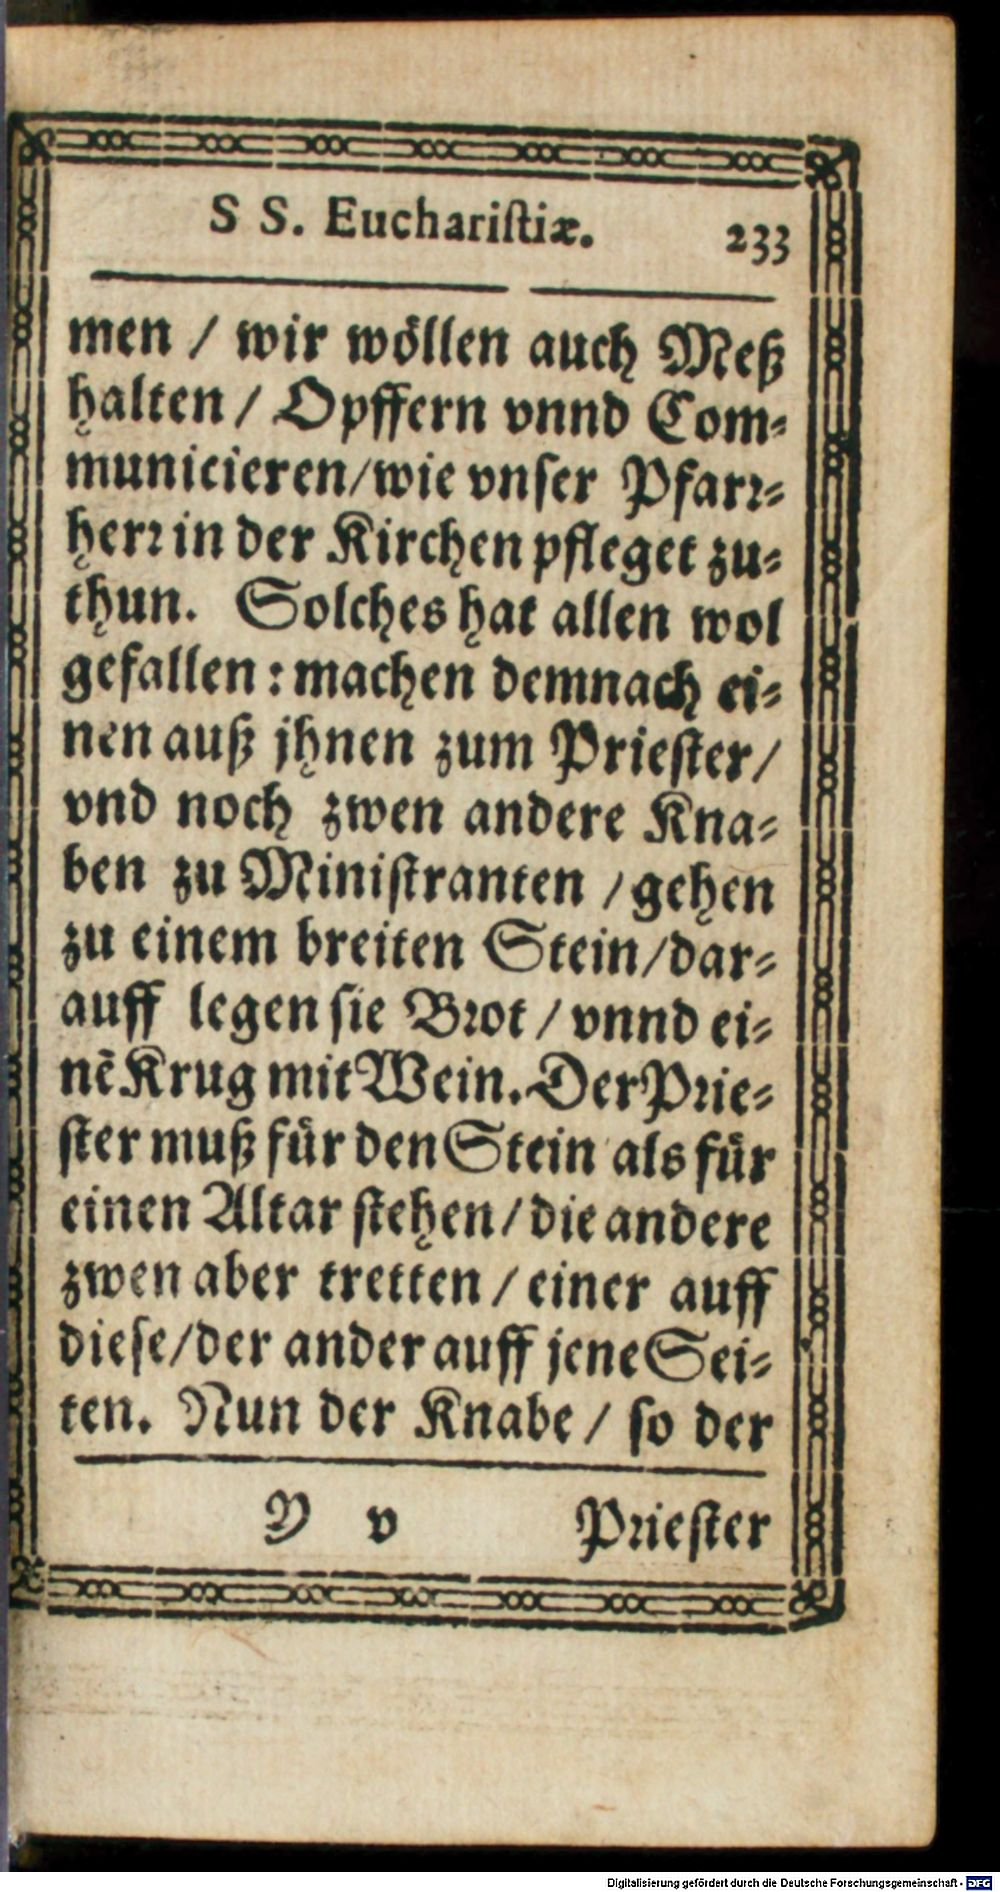 S S. Euchariſtiæ. 233
men / wir wöllen auch Meß
halten / Opffern vnnd Com-
municieren/wie vnſer Pfarꝛ-
herꝛ in der Kirchen pfleget zu-
thun. Solches hat allen wol
gefallen : machen demnach ei-
nen auß jhnen zum Prieſter/
vnd noch zwen andere Kna-
ben zu Miniſtranten / gehen
zu einem breiten Stein/dar-
auff legen ſie Bꝛot / vnnd ei-
nē Krug mit Wein. Der Pꝛie-
ſter muß für den Stein als für
einen Altar ſtehen/ die andere
zwen aber tretten / einer auff
dieſe/der ander auff jene Sei-
ten. Nun der Knabe / ſo der
Y v Pꝛieſter
Digitalisierung gefördert durch die Deutsche Forschungsgemeinschaft - DFG